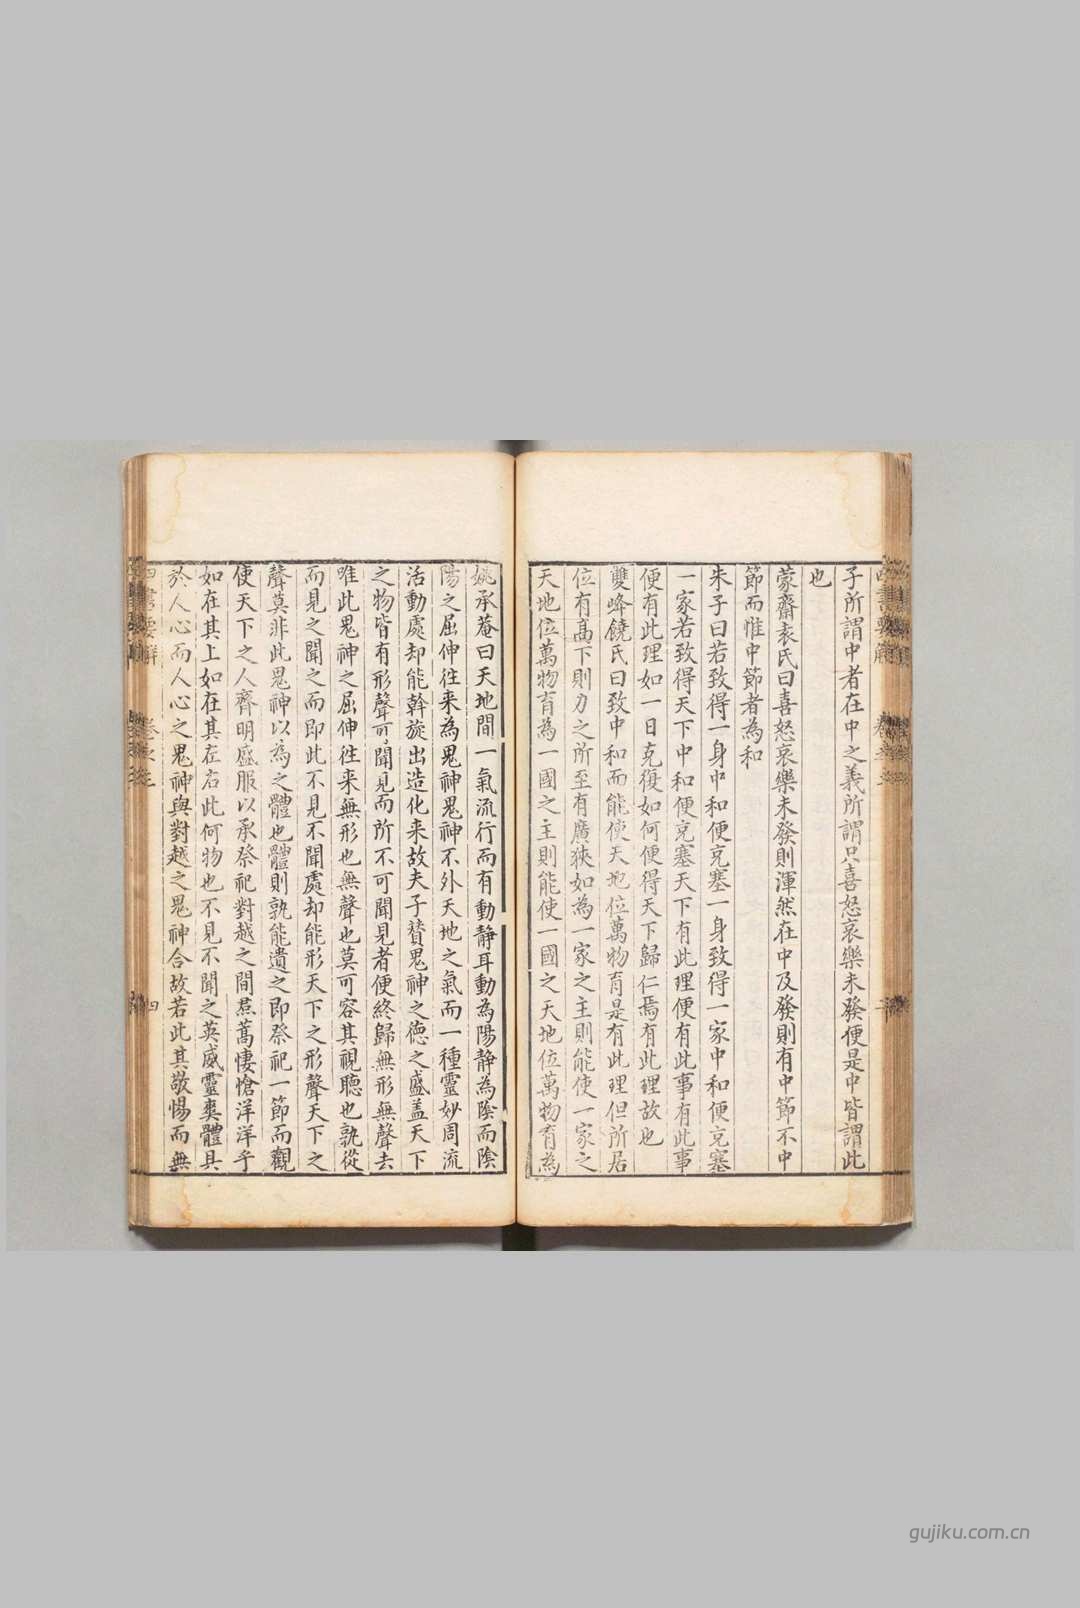 子所謂中者在中之義所謂只喜怒哀樂未發便是中皆謂此
也
蒙齋袁氏曰喜怒哀樂未發則渾然在中及發則有中節不中
節而惟中節者為和
朱子曰若致得一身中和便克塞一身致得一家中和便克塞
一家若致得天下中和便克塞天下有此理便有此事有此事
便有此理如一日克復如何便得天下歸仁焉有此理故也
雙峰饒氏曰致中和而能使天地位萬物育是有此理但所居
位有高下則力之所至有廣狹如為一家之主則能使一家之
天地位萬物育為一國之主則能使一國之天地位萬物育為
姚承菴曰天地間一氣流行而有動靜耳動為陽静為陰而陰
陽之屈伸往來為鬼神鬼神不外天地之氣而一種靈妙周流
活動處却能斡旋出造化来故夫子贊鬼神之德之盛盖天下
之物皆有形聲可聞見而所不可聞見者便終歸無形無聲去
唯此鬼神之屈伸往来無形也無聲也莫可容其視聽也孰從
而見之聞之而即此不見不聞處却能形天下之形聲天下之
聲莫非此鬼神以為之體也體則孰能遺之即祭祀一節而觀
使天下之人齊明盛服以承祭祀對越之間焄蒿悽愴洋洋乎
如在其上如在其左右此何物也不見不聞之英威靈爽體具
於人心而人心之鬼神與對越之鬼神合故若此其敬惕而無
四書要解
卷之
四
gujiku.com.cn